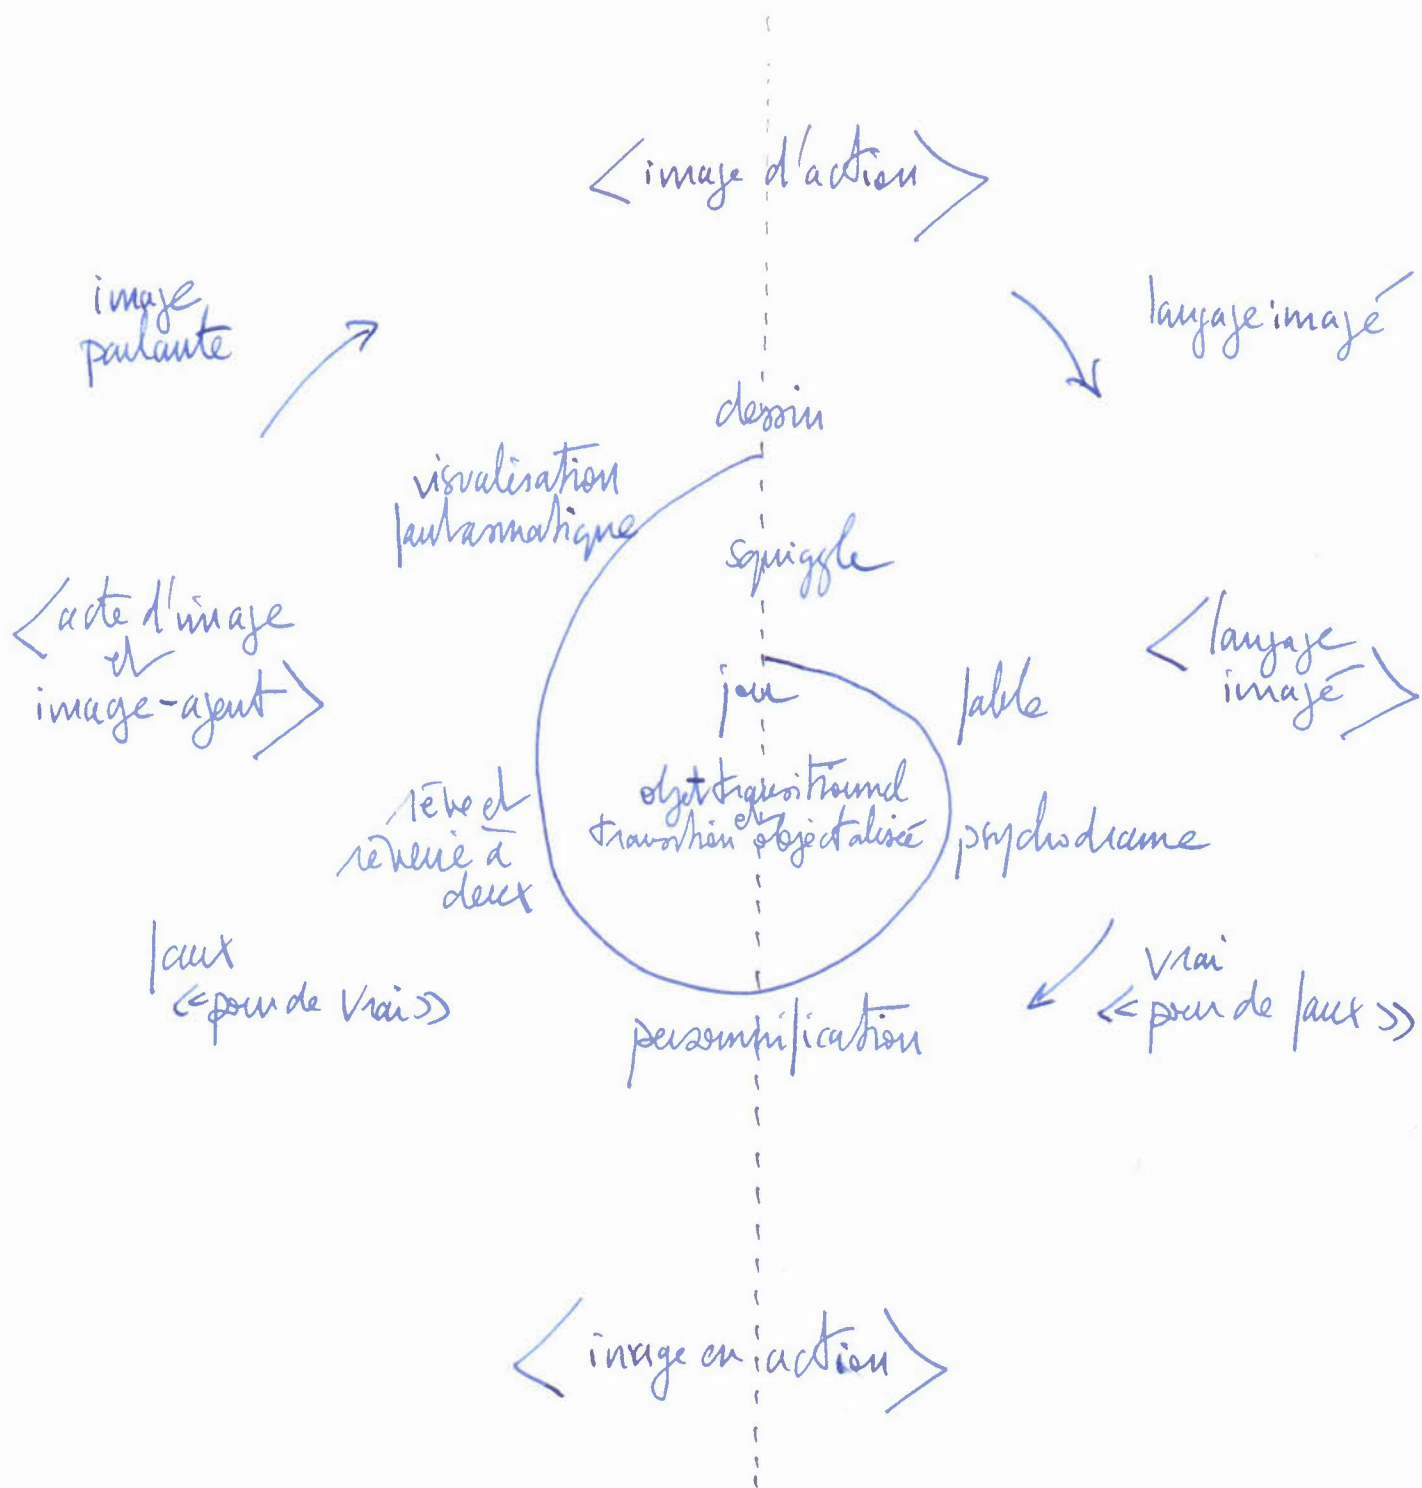 <image d'action>
image
parlante
langage imagé
dessin
visualisation
fantasmatique
squiggle
<acte d'image
et
image-agent>
<langage
imagé>
jeu
fable
objet transitionnel
et
transition objectalisée
rêve et
rêverie à
deux
psychodrame
faux
«pour de vrai»
vrai
«pour de faux»
personnification
<image en action>